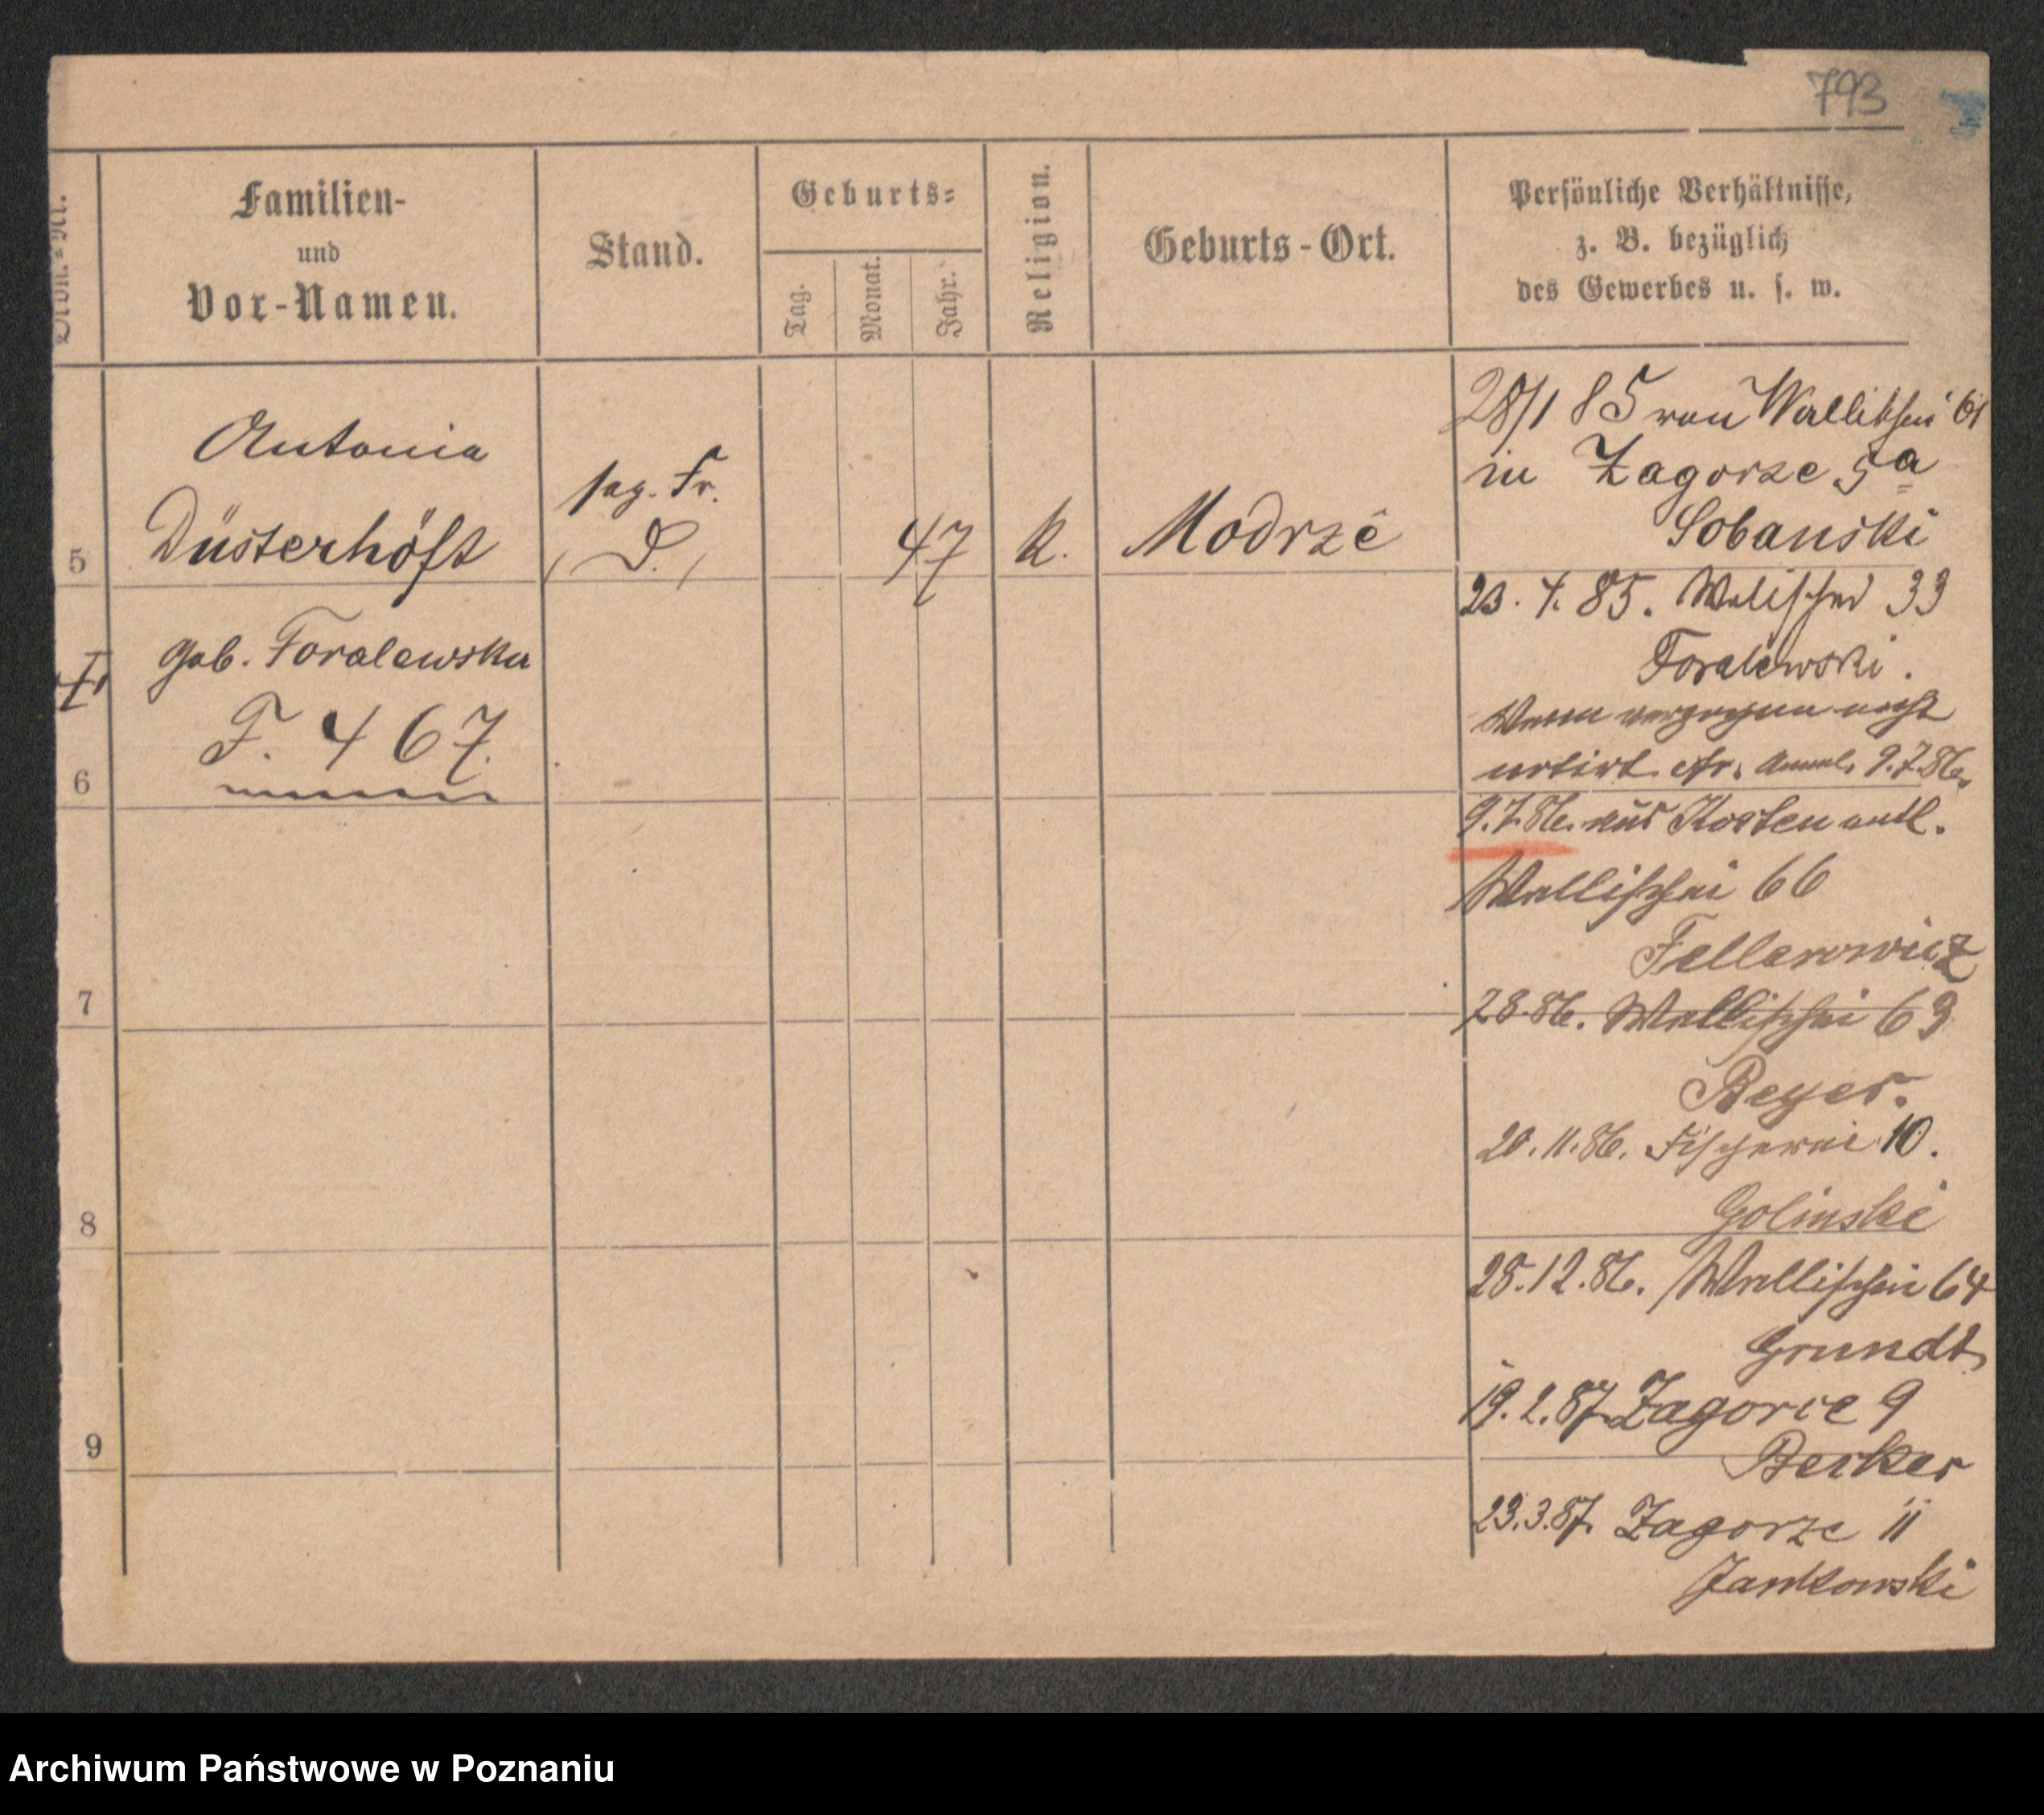 793
Ordn.-Nr.
Familien-
und
Vor-Namen.
Stand.
Geburts-
Tag.
Monat.
Jahr.
Religion.
Geburts-Ort.
Persönliche Verhältnisse,
z. B. bezüglich
des Gewerbes u. s. w.
5
Antonia
Düsterhöft
Fr.
47
k.
Modrze
geb. Foralewska
F. 467.
6
7
8
9
28/1 85 von Wallischei 61
in Zagorze 5a
Sobanski
23. 4. 85. Walischei 33
Foralewski.
9.7.86.
9.7.86. aus Kosten
Wallischei 66
Fellerowicz
86. Wallischei 63
Beyer.
20.11.86. Fischerei 10.
Golinski
28.12.86. Wallischei 64
Grundt
19.2.87 Zagorze 9
Berker
23.3.87. Zagorze 11
Jankowski
Archiwum Państwowe w Poznaniu